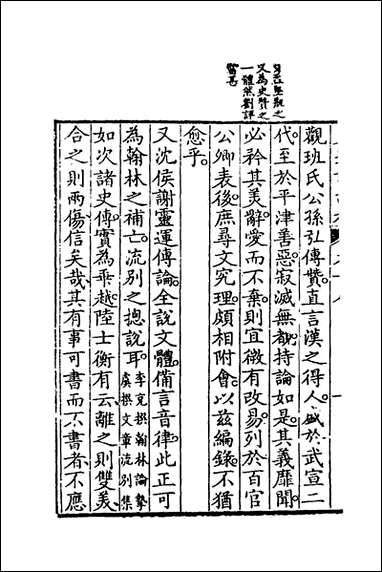 觀之
又為史贊之
一體然劉評
當甚
觀班氏公孫弘傳贊。直言漢之得人。盛於武宣二
代。至於平津善惡。寂滅無覩。持論如是。其義靡聞。
必矜其美辭。愛而不棄。則宜微有改易。列於百官
公卿表後。庶尋文究理。頗相附會。以茲編錄。不猶
愈乎。
又沈侯謝靈運傳論。全說文體。備言音律。此正可
為翰林之補亡。流別之摠說耳。李充撰翰林論摯
虞撰文章流別集
如次諸史傳。實為乖越。陸士衡有云。離之則雙美。
合之則兩傷。信矣哉。其有事可書而不書者。不應